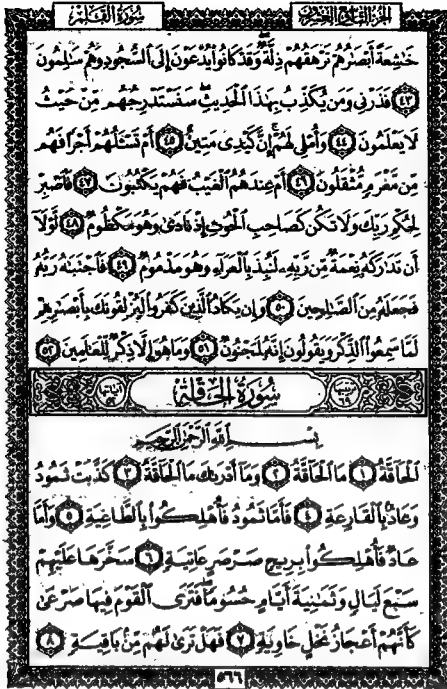 الجزء التاسع والعشرون
سورة القلم
خَٰشِعَةً أَبْصَٰرُهُمْ تَرْهَقُهُمْ ذِلَّةٌ وَقَدْ كَانُوا۟ يُدْعَوْنَ إِلَى ٱلسُّجُودِ وَهُمْ سَٰلِمُونَ
٤٣ فَذَرْنِى وَمَن يُكَذِّبُ بِهَٰذَا ٱلْحَدِيثِ سَنَسْتَدْرِجُهُم مِّنْ حَيْثُ
لَا يَعْلَمُونَ ٤٤ وَأُمْلِى لَهُمْ إِنَّ كَيْدِى مَتِينٌ ٤٥ أَمْ تَسْـَٔلُهُمْ أَجْرًا فَهُم
مِّن مَّغْرَمٍ مُّثْقَلُونَ ٤٦ أَمْ عِندَهُمُ ٱلْغَيْبُ فَهُمْ يَكْتُبُونَ ٤٧ فَٱصْبِرْ
لِحُكْمِ رَبِّكَ وَلَا تَكُن كَصَاحِبِ ٱلْحُوتِ إِذْ نَادَىٰ وَهُوَ مَكْظُومٌ ٤٨ لَّوْلَآ
أَن تَدَٰرَكَهُۥ نِعْمَةٌ مِّن رَّبِّهِۦ لَنُبِذَ بِٱلْعَرَآءِ وَهُوَ مَذْمُومٌ ٤٩ فَٱجْتَبَٰهُ رَبُّهُۥ
فَجَعَلَهُۥ مِنَ ٱلصَّٰلِحِينَ ٥٠ وَإِن يَكَادُ ٱلَّذِينَ كَفَرُوا۟ لَيُزْلِقُونَكَ بِأَبْصَٰرِهِمْ
لَمَّا سَمِعُوا۟ ٱلذِّكْرَ وَيَقُولُونَ إِنَّهُۥ لَمَجْنُونٌ ٥١ وَمَا هُوَ إِلَّا ذِكْرٌ لِّلْعَٰلَمِينَ ٥٢
سورة الحاقة
بِسْمِ ٱللَّهِ ٱلرَّحْمَٰنِ ٱلرَّحِيمِ
ٱلْحَآقَّةُ ١ مَا ٱلْحَآقَّةُ ٢ وَمَآ أَدْرَىٰكَ مَا ٱلْحَآقَّةُ ٣ كَذَّبَتْ ثَمُودُ
وَعَادٌۢ بِٱلْقَارِعَةِ ٤ فَأَمَّا ثَمُودُ فَأُهْلِكُوا۟ بِٱلطَّاغِيَةِ ٥ وَأَمَّا
عَادٌ فَأُهْلِكُوا۟ بِرِيحٍ صَرْصَرٍ عَاتِيَةٍ ٦ سَخَّرَهَا عَلَيْهِمْ
سَبْعَ لَيَالٍ وَثَمَٰنِيَةَ أَيَّامٍ حُسُومًا فَتَرَى ٱلْقَوْمَ فِيهَا صَرْعَىٰ
كَأَنَّهُمْ أَعْجَازُ نَخْلٍ خَاوِيَةٍ ٧ فَهَلْ تَرَىٰ لَهُم مِّنۢ بَاقِيَةٍ ٨
٥٦٦